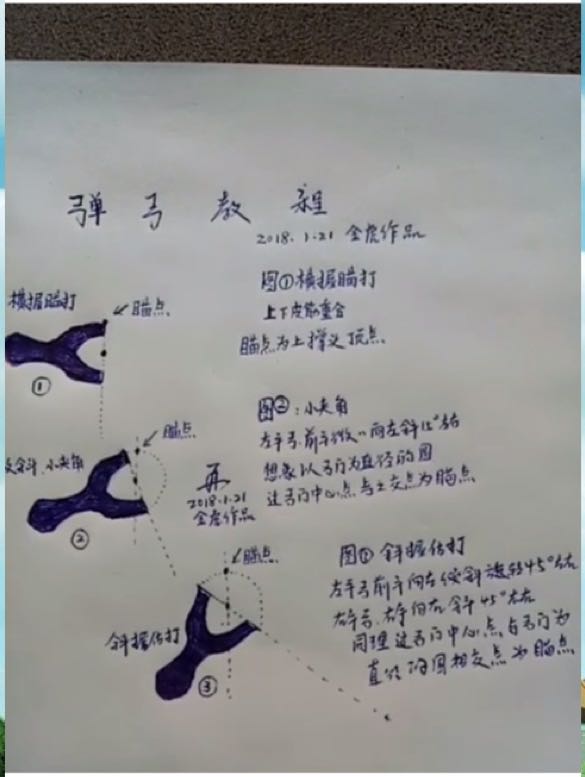 弹弓教程
2018.1.21 金虎作品
图①横握瞄打
上下皮筋重合
瞄点为上撑叉顶点
横握瞄打
瞄点
①
图②:小夹角
左手弓,前手微"向左斜15°左右
想象以弓门为直径的圆
过弓门中心点与上交点为瞄点
瞄点
反斜、小夹角
②
再
2018.1.21
金虎作品
图③斜握估打
左手弓前手向左倾斜旋转45°左右
右手弓,右手向右斜45°左右
同理过弓门中心点与弓门为
直径的圆相交点为瞄点
瞄点
斜握估打
③